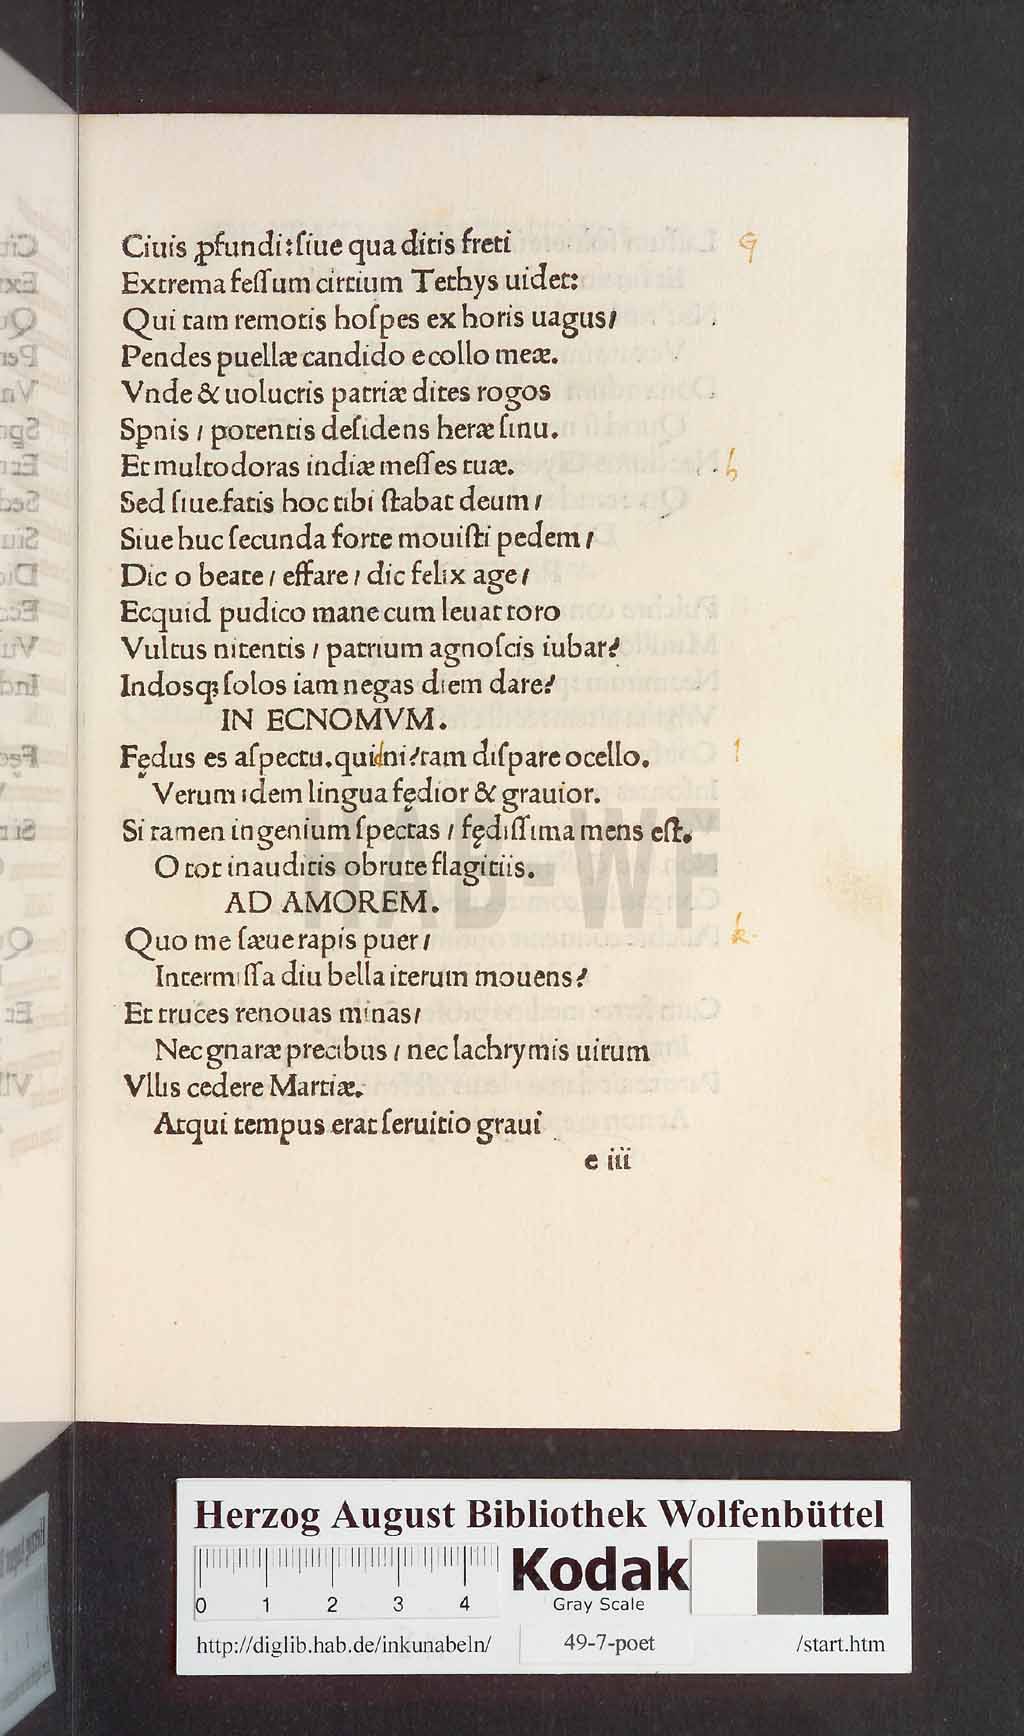 Ciuis ꝓfundi:ſiue qua ditis freti
Extrema feſſum cirtium Tethys uidet:
Qui tam remotis hoſpes ex horis uagus/
Pendes puellæ candido e collo meæ.
Vnde & uolucris patriæ dites rogos
Spnis / potentis deſidens heræ ſinu.
Et multo doras indiæ meſſes tuæ.
Sed ſiue.fatis hoc tibi ſtabat deum /
Siue huc ſecunda forte mouiſti pedem /
Dic o beate / effare / dic felix age /
Ecquid pudico mane cum leuat toro
Vultus nitentis / patrium agnoſcis iubar?
Indosqꝫ ſolos iam negas diem dare?
IN ECNOMVM.
Fędus es aſpectu.quidni?tam diſpare ocello.
Verum idem lingua fędior & grauior.
Si tamen ingenium ſpectas / fędiſſima mens eſt.
O tot inauditis obrute flagitiis.
AD AMOREM.
Quo me ſæue rapis puer /
Intermiſſa diu bella iterum mouens?
Et truces renouas minas/
Nec gnaræ precibus / nec lachrymis uirum
Vllis cedere Martiæ.
Atqui tempus erat ſeruitio graui
e iii
G
h
i
k
HAB-WF
Herzog August Bibliothek Wolfenbüttel
0 1 2 3 4
Kodak
Gray Scale
http://diglib.hab.de/inkunabeln/ 49-7-poet /start.htm